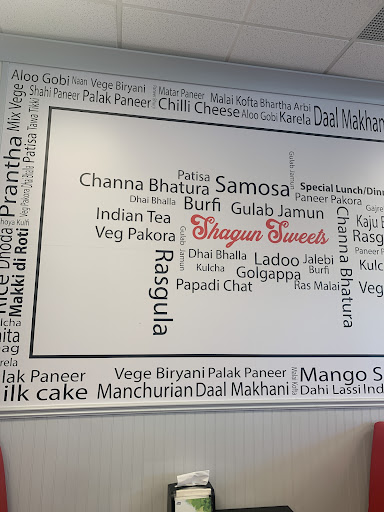 Aloo Gobi Naan Vege Biryani Matar Paneer Malai Kofta Bhartha Arbi
Shahi Paneer Palak Paneer Chilli Cheese Aloo Gobi Karela Daal Makhan
Mix Vege
Tawa Tikki
Prantha
Patisa
Veg Pakora
Khoya Kulfi
Makki di Roti
Rice
Dhoda
Patisa
Gulab Jamun
Channa Bhatura Samosa Special Lunch/Dinn
Dhai Bhalla Burfi Gulab Jamun Paneer Pakora
Indian Tea Shagun Sweets Channa Bhatura
Gajre
Kaju B
Rasg
Veg Pakora Gulab Jamun Dhai Bhalla Ladoo Jalebi
Rasgula Kulcha Golgappa Burfi Kulc
Papadi Chat Ras Malai Veg
lcha
ita
ag
rela
lak Paneer Vege Biryani Palak Paneer Mango S
ilk cake Manchurian Daal Makhani Malai Kofta Dahi Lassi Ind